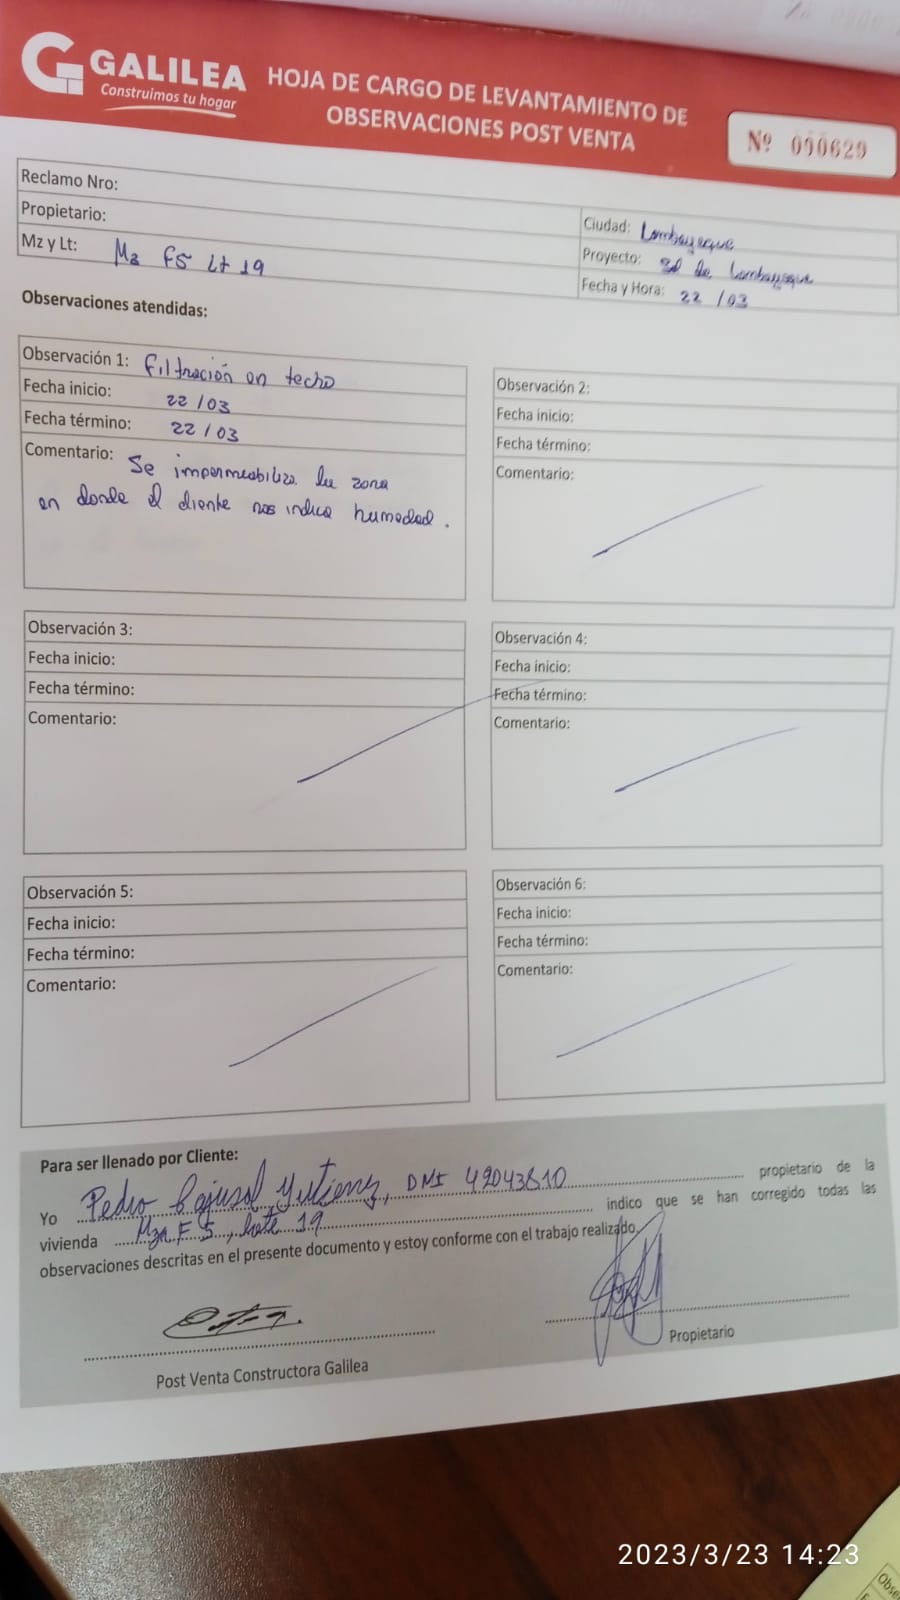 GALILEA
Construimos tu hogar
HOJA DE CARGO DE LEVANTAMIENTO DE
OBSERVACIONES POST VENTA
Nº 000629
Reclamo Nro:
Propietario:
Mz y Lt: Mz F5 Lt 19
Ciudad: Lambayeque
Proyecto: Sol de Lambayeque
Fecha y Hora: 22 / 03
Observaciones atendidas:
Observación 1: Filtración en techo
Fecha inicio: 22 / 03
Fecha término: 22 / 03
Comentario: Se impermeabiliza la zona
en donde el cliente nos indica humedad.
Observación 2:
Fecha inicio:
Fecha término:
Comentario:
Observación 3:
Fecha inicio:
Fecha término:
Comentario:
Observación 4:
Fecha inicio:
Fecha término:
Comentario:
Observación 5:
Fecha inicio:
Fecha término:
Comentario:
Observación 6:
Fecha inicio:
Fecha término:
Comentario:
Para ser llenado por Cliente:
Yo Pedro DNI 42043810 propietario de la
vivienda Mza F5, Lote 19 indico que se han corregido todas las
observaciones descritas en el presente documento y estoy conforme con el trabajo realizado.
Post Venta Constructora Galilea
Propietario
2023/3/23 14:23